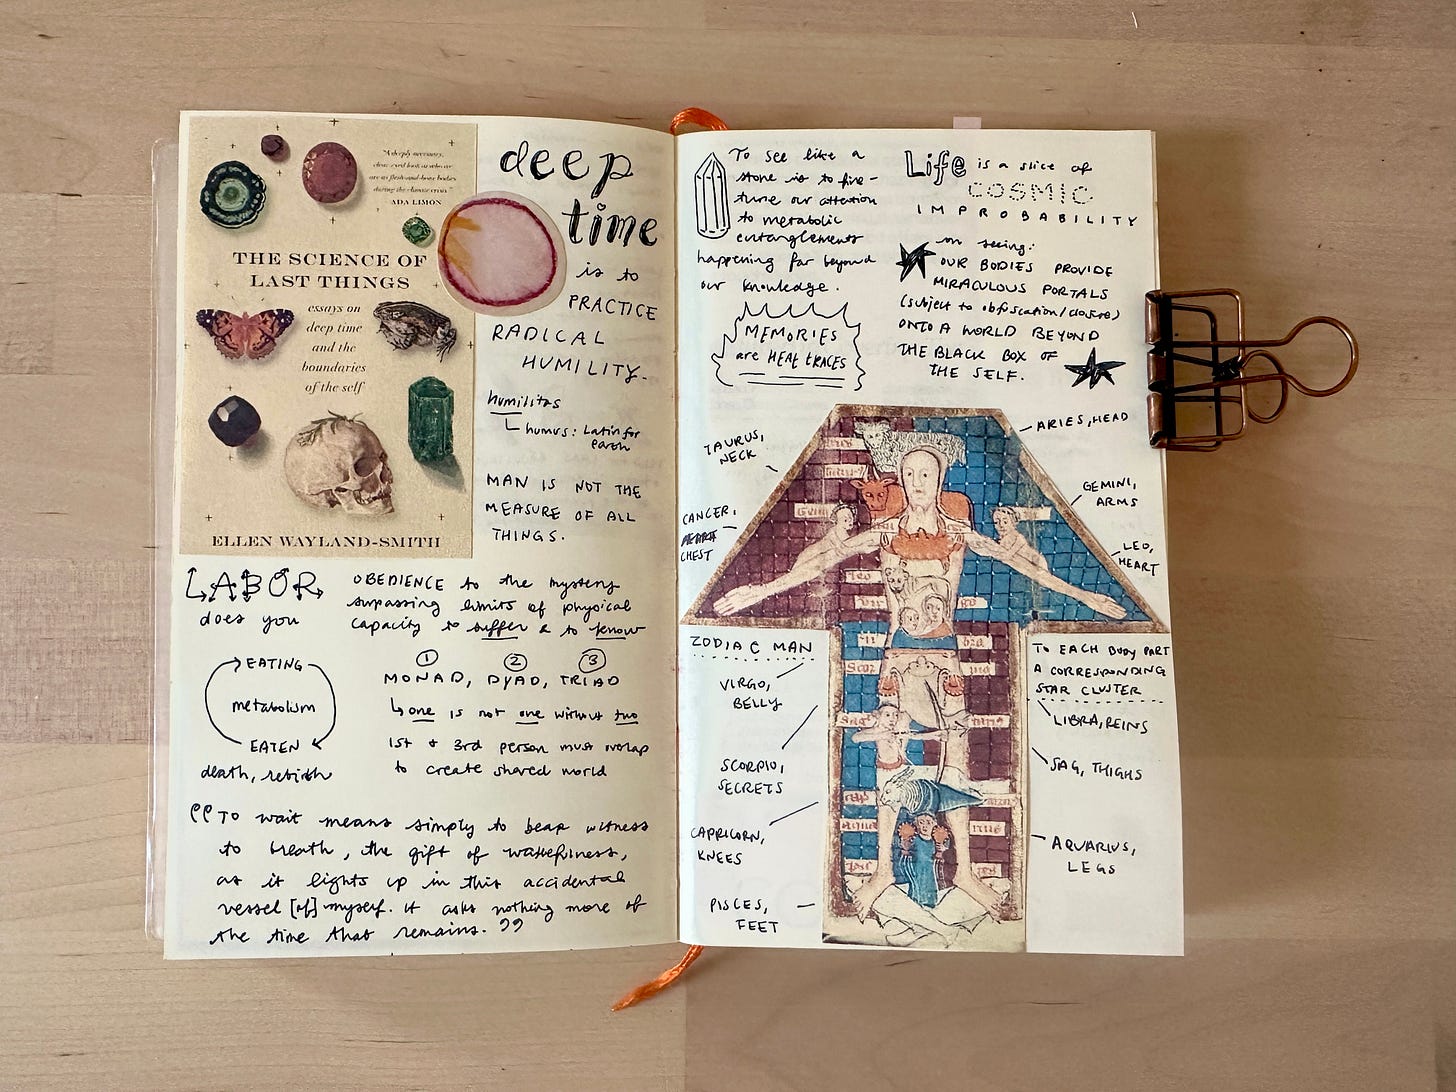 "A deeply necessary,
clear-eyed look at who we
are as flesh-and-bone bodies
during the climate crisis."
ADA LIMÓN
THE SCIENCE OF
LAST THINGS
essays on
deep time
and the
boundaries
of the self
ELLEN WAYLAND-SMITH
deep
time
is to
PRACTICE
RADICAL
HUMILITY.
humilitas
humus: Latin for
earth
MAN IS NOT THE
MEASURE OF ALL
THINGS.
LABOR
does you
OBEDIENCE to the mystery
surpassing limits of physical
capacity to suffer & to know
EATING
metabolism
EATEN
death, rebirth
1 2 3
MONAD, DYAD, TRIAD
one is not one without two
1st & 3rd person must overlap
to create shared world
"To wait means simply to bear witness
to breath, the gift of wakefulness,
as it lights up in this accidental
vessel [of] myself. It asks nothing more of
the time that remains."
To see like a
stone is to fine-
tune our attention
to metabolic
entanglements
happening far beyond
our knowledge.
MEMORIES
are HEAT TRACES
Life is a slice of
COSMIC
IMPROBABILITY
on seeing:
OUR BODIES PROVIDE
MIRACULOUS PORTALS
(subject to obfuscation/closure)
ONTO A WORLD BEYOND
THE BLACK BOX OF
THE SELF.
TAURUS,
NECK
CANCER,
CHEST
ARIES, HEAD
GEMINI,
ARMS
LEO,
HEART
ZODIAC MAN
VIRGO,
BELLY
SCORPIO,
SECRETS
CAPRICORN,
KNEES
PISCES,
FEET
TO EACH BODY PART
A CORRESPONDING
STAR CLUSTER
LIBRA, REINS
SAG, THIGHS
AQUARIUS,
LEGS